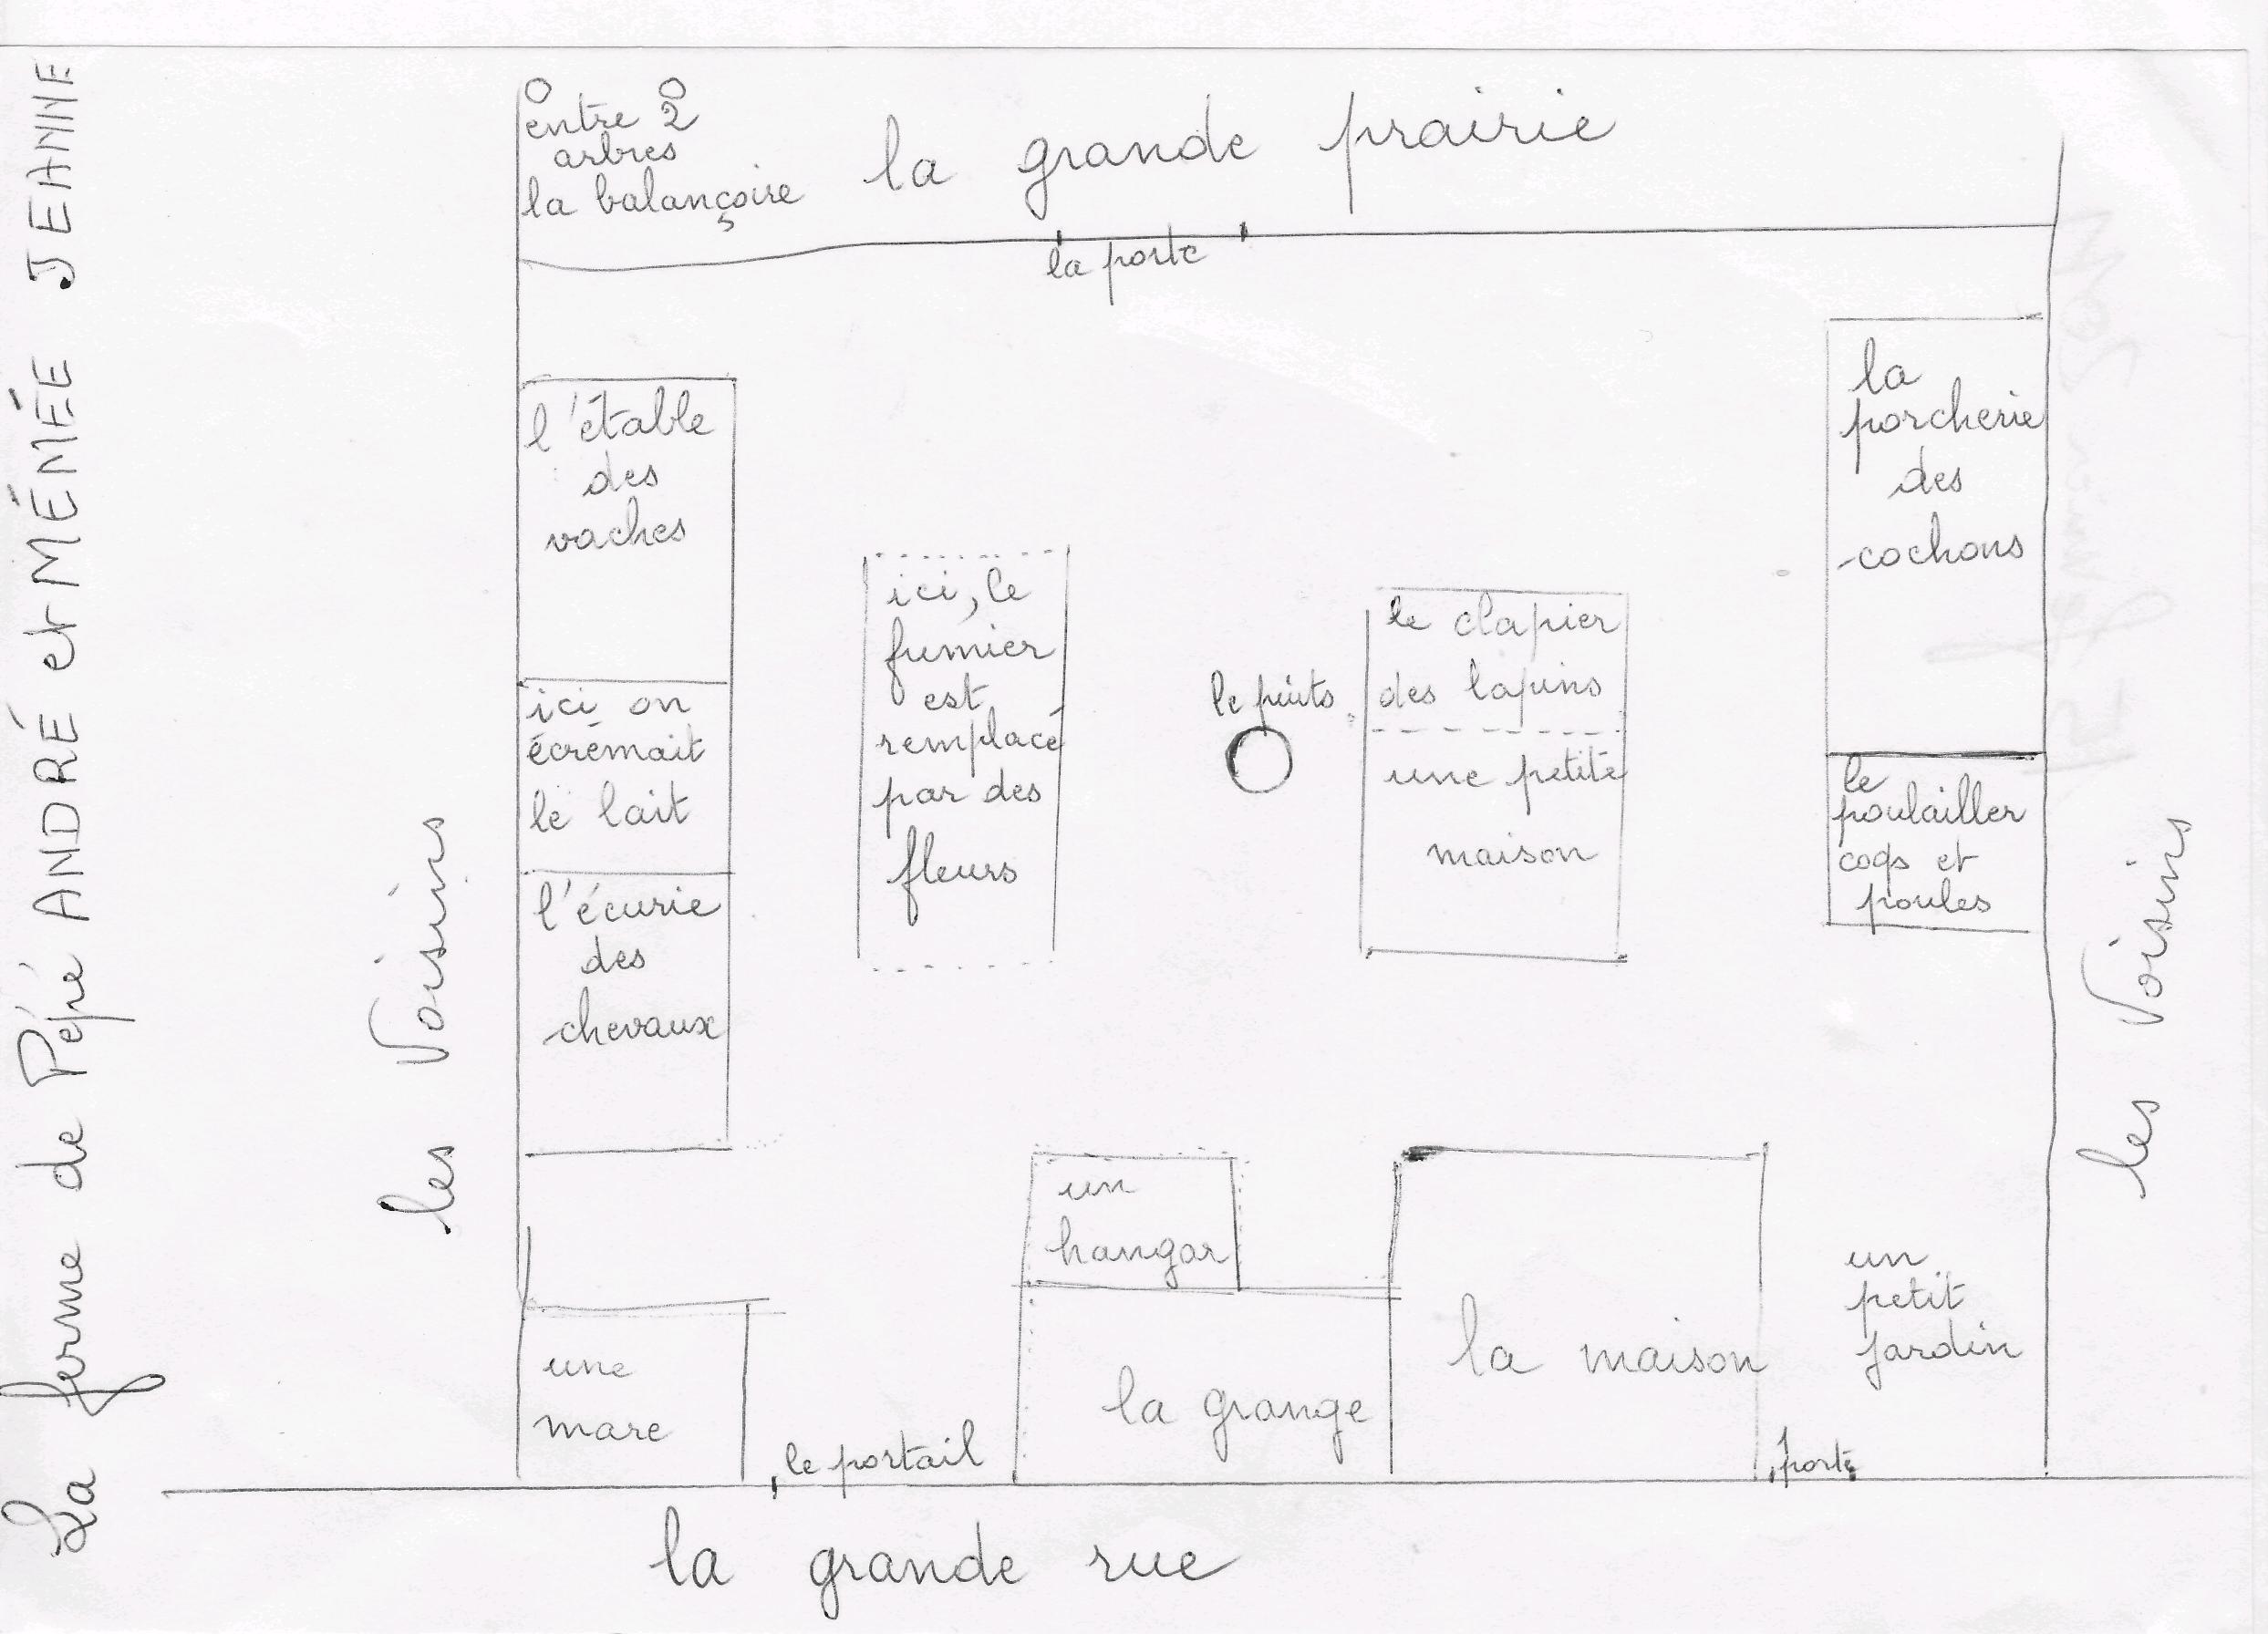 La ferme de Pépé ANDRÉ et MÉMÉE JEANNE
entre 2
arbres
la balançoire
la grande prairie
la porte
l'étable
des
vaches
ici on
écrémait
le lait
l'écurie
des
chevaux
ici, le
fumier
est
remplacé
par des
fleurs
le puits
le clapier
des lapins
une petite
maison
la
porcherie
des
cochons
le
poulailler
coqs et
poules
les Voisins
les Voisins
un
hangar
la grange
la maison
un
petit
jardin
une
mare
le portail
1 porte
la grande rue